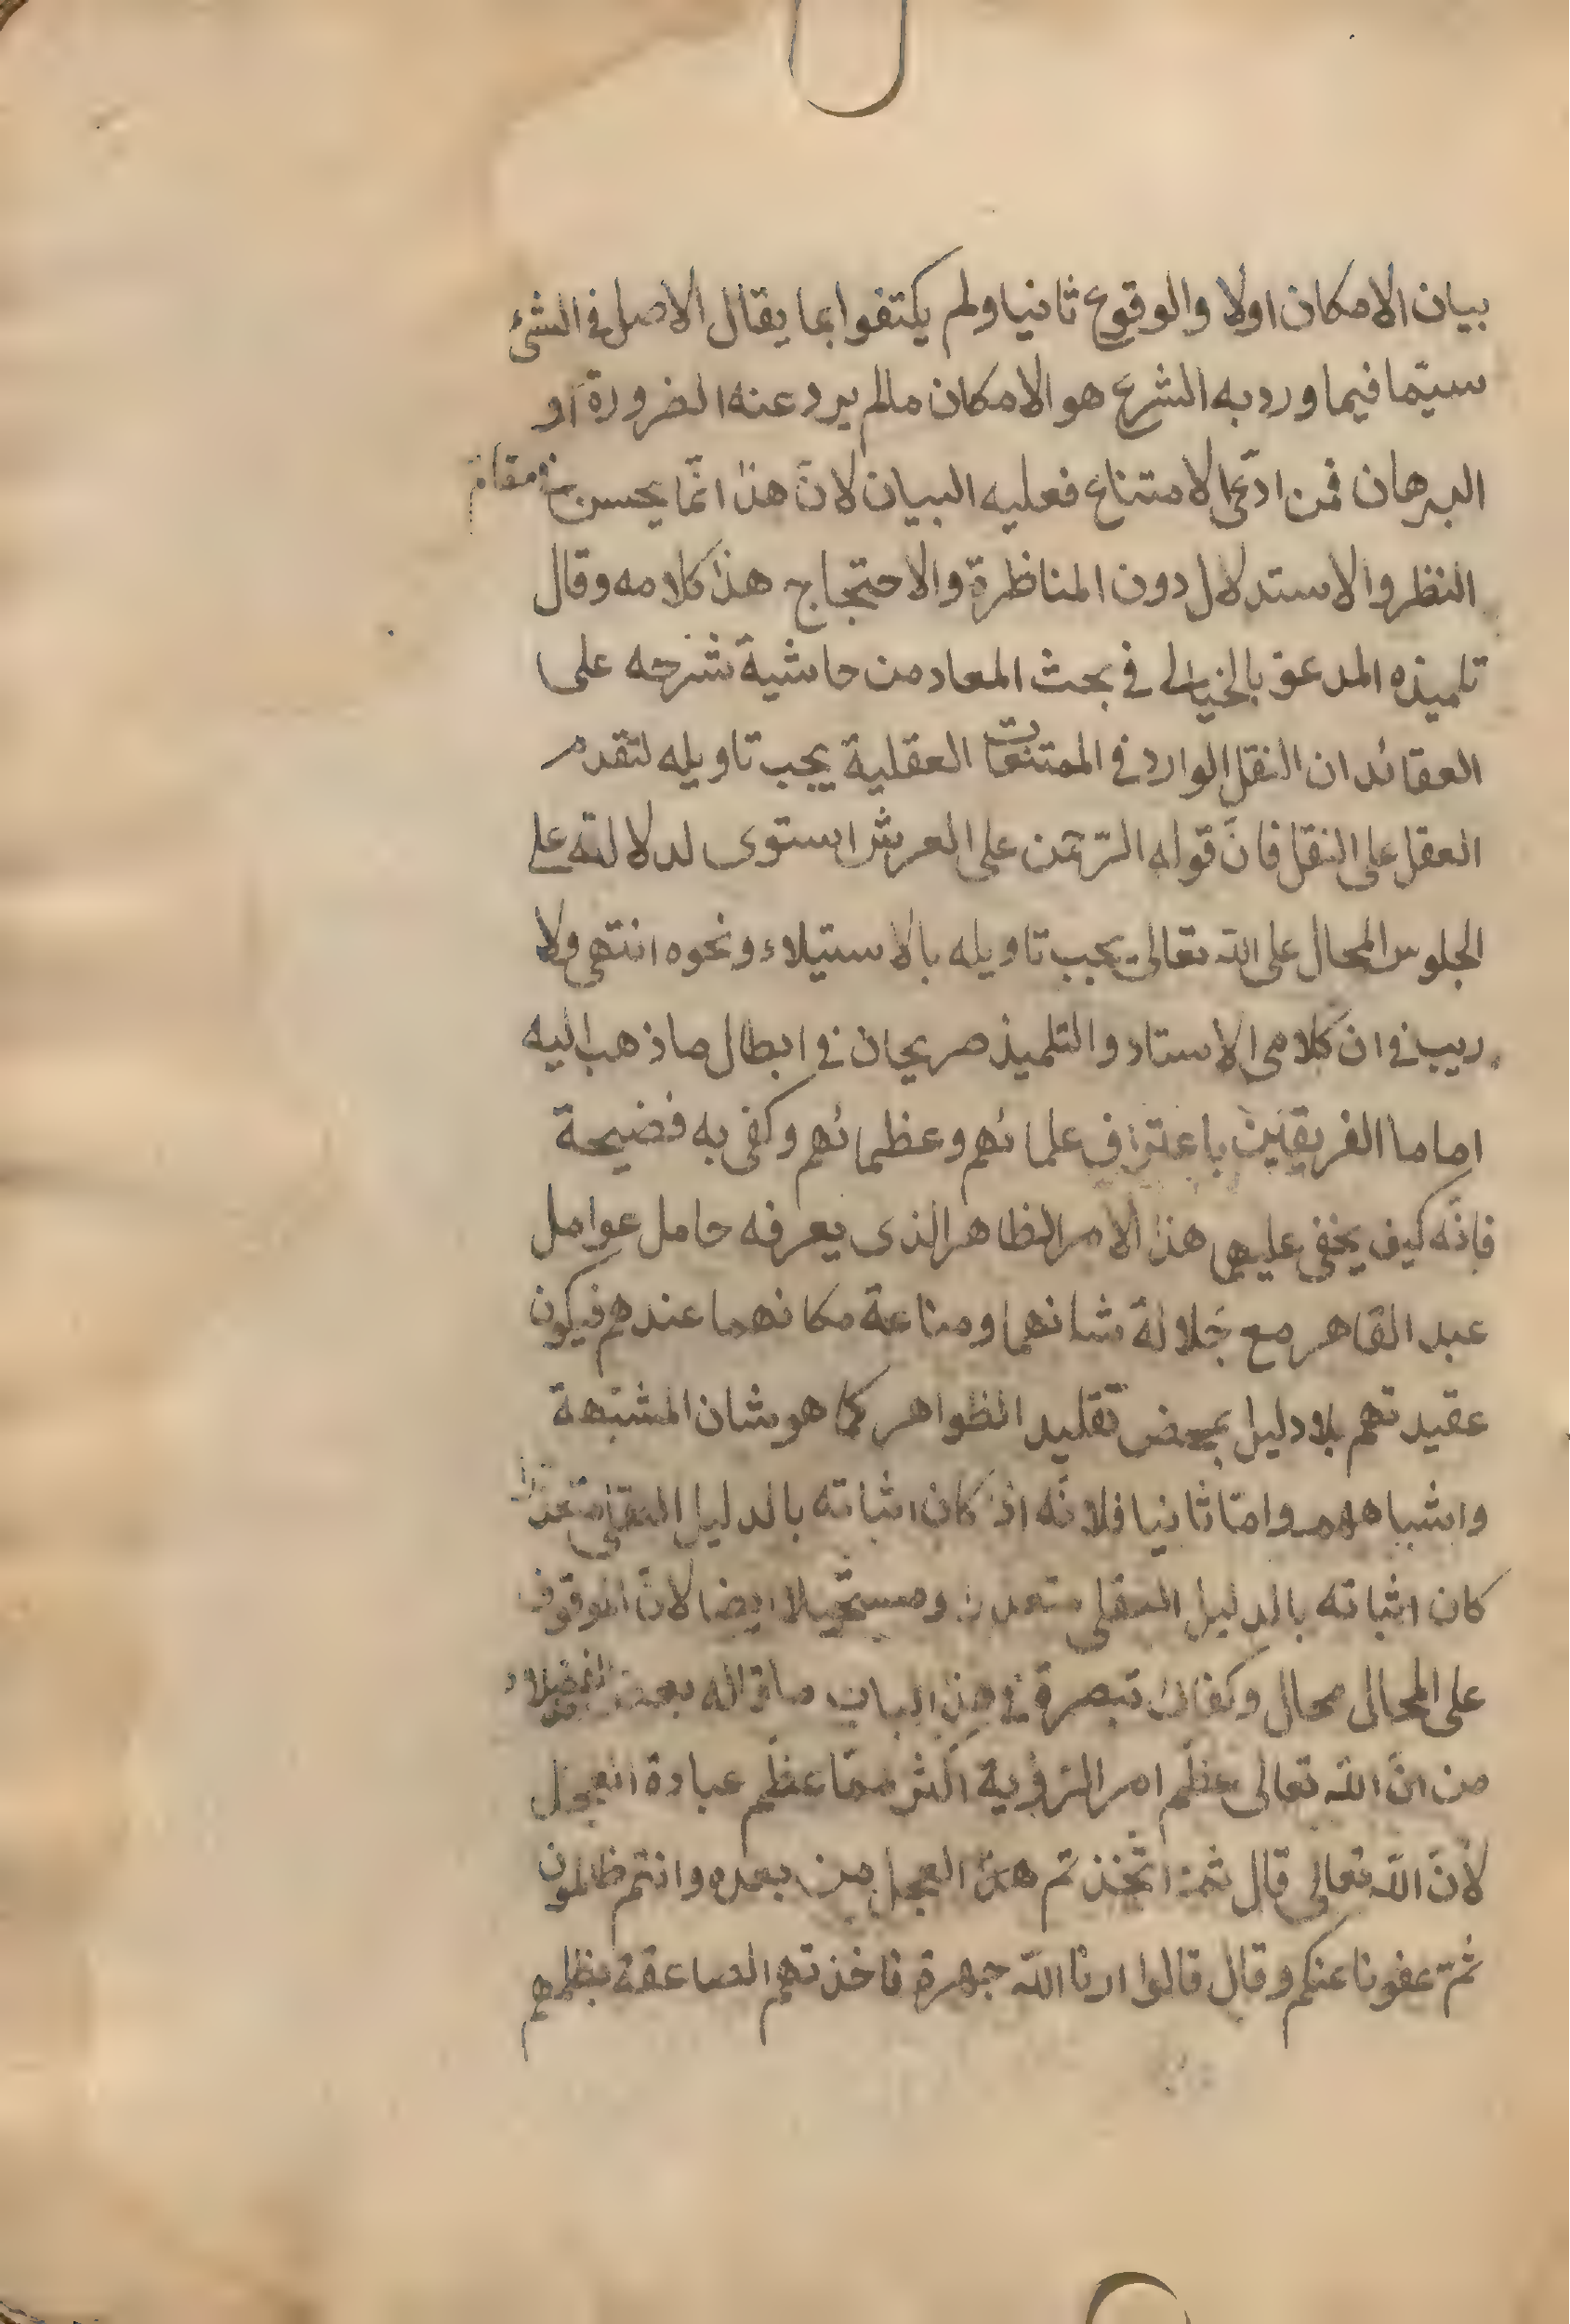 بيان الامكان اولا والوقوع ثانيا ولم يكتفوا بما يقال الاصل في الشئ
سيّما فيما ورد به الشرع هو الامكان مالم يرد عنه الضرورة او
البرهان فمن ادّعى الامتناع فعليه البيان لانّ هذا انّما يحسن في مقام
النظر والاستدلال دون المناظرة والاحتجاج هذا كلامه وقال
تلميذه المدعو بالخيالى في بحث المعاد من حاشية شرحه على
العقائد ان النقل الوارد في الممتنعات العقلية يجب تاويله لتقدم
العقل على النقل فانّ قوله الرّحمن على العرش استوى لدلالته على
الجلوس المحال على الله تعالى يجب تاويله بالاستيلاء ونحوه انتهى ولا
ريب في ان كلامى الاستاد والتلميذ صريحان في ابطال ما ذهب اليه
اماما الفريقين باعتراف علمائهم وعظمائهم وكفى به فضيحة
فانّه كيف يخفى عليهما هذا الامر الظاهر الذى يعرفه حامل عوامل
عبد القاهر مع جلالة شانهما ومناعة مكانهما عندهم فيكون
عقيدتهم بلا دليل بمحض تقليد الظواهر كما هو شان المشبّهة
واشباههم وامّا ثانيا فلانّه اذا كان اثباته بالدليل العقلى متعذرا
كان اثباته بالدليل النقلى متعذرا ومستحيلا ايضا لانّ الموقوف
على المحال محال وكفاك تبصرة في هذا الباب ما قاله بعض الفضلاء
من انّ الله تعالى عظّم امر الرّؤية اكثر ممّا عظّم عبادة العجل
لأنّ الله تعالى قال ثمّ اتّخذتم هذا العجل من بعده وانتم ظالمون
ثمّ عفونا عنكم وقال قالوا ارنا الله جهرة فاخذتهم الصاعقة بظلمهم